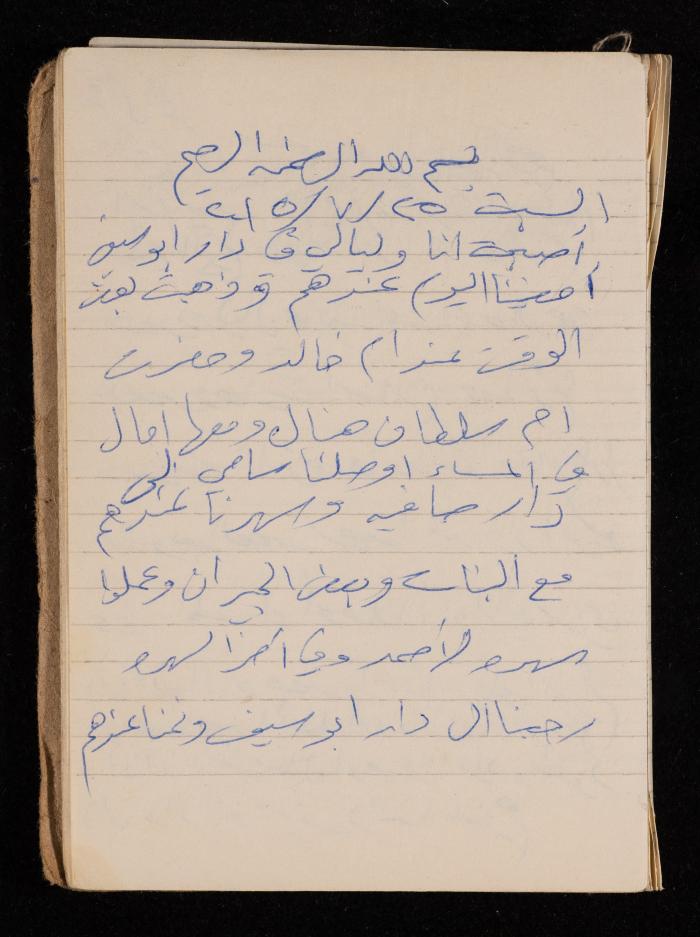 بسم الله الرحمن الرحيم
السبت ٢٥/٧/٢٠١٥
أصبحت انا وليالي في دار ابو سيف
أمضينا اليوم عندهم وذهبت بعض
الوقت عند ام خالد وحضرت
ام سلطان هناك ومعها امال
في المساء اوصلنا سامي الى
دار صافيه وسهرنا عندهم
مع البنات وبعض الجيران وعملوا
سهره لأحمد وفي آخر السهره
رجعنا الى دار ابو سيف ونمنا عندهم